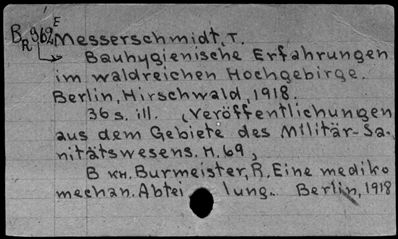 B R 962 E
Messerschmidt, T.
Bauhygienische Erfahrungen
im waldreichen Hochgebirge.
Berlin, Hirschwald, 1918.
36 s. ill. (Veröffentlichungen
aus dem Gebiete des Militär-Sa-
nitätswesens. H. 69,
В кн. Burmeister, R. Eine mediko
mechan. Abteilung. Berlin, 1918